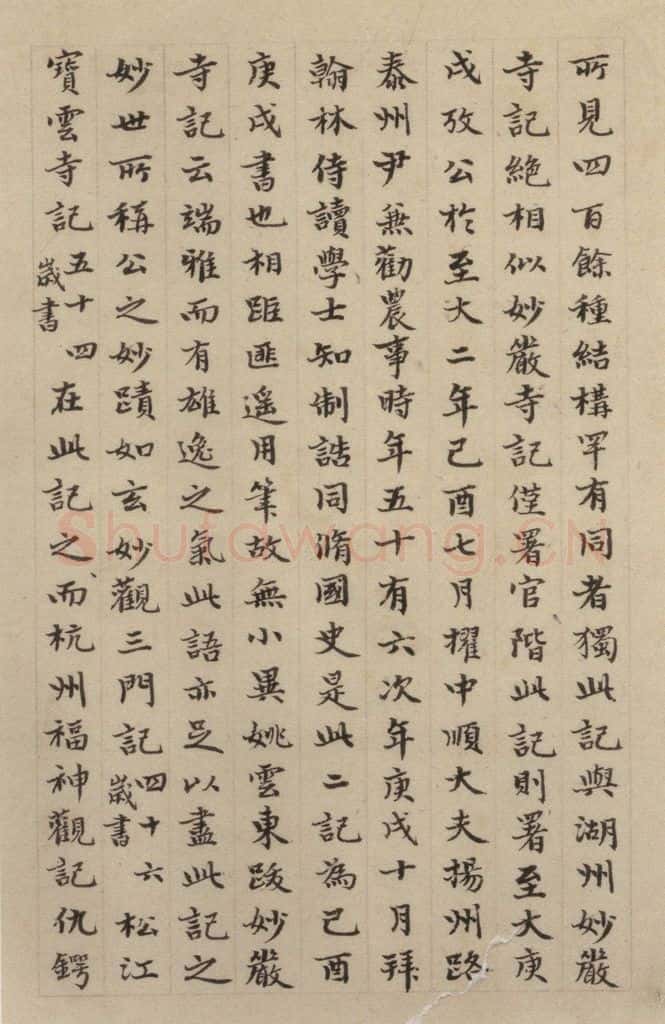 所見四百餘種結構罕有同者獨此記與湖州妙嚴
寺記絕相似妙嚴寺記僅署官階此記則署至大庚
戌攷公於至大二年己酉七月擢中順大夫揚州路
泰州尹兼勸農事時年五十有六次年庚戌十月拜
翰林侍讀學士知制誥同脩國史是此二記為己酉
庚戌書也相距匪遥用筆故無小異姚雲東跋妙嚴
寺記云端雅而有雄逸之氣此語亦足以盡此記之
妙世所稱公之妙蹟如玄妙觀三門記四十六歲書松江
寶雲寺記五十四歲書在此記之前而杭州福神觀記仇鍔
Shufawang.CN